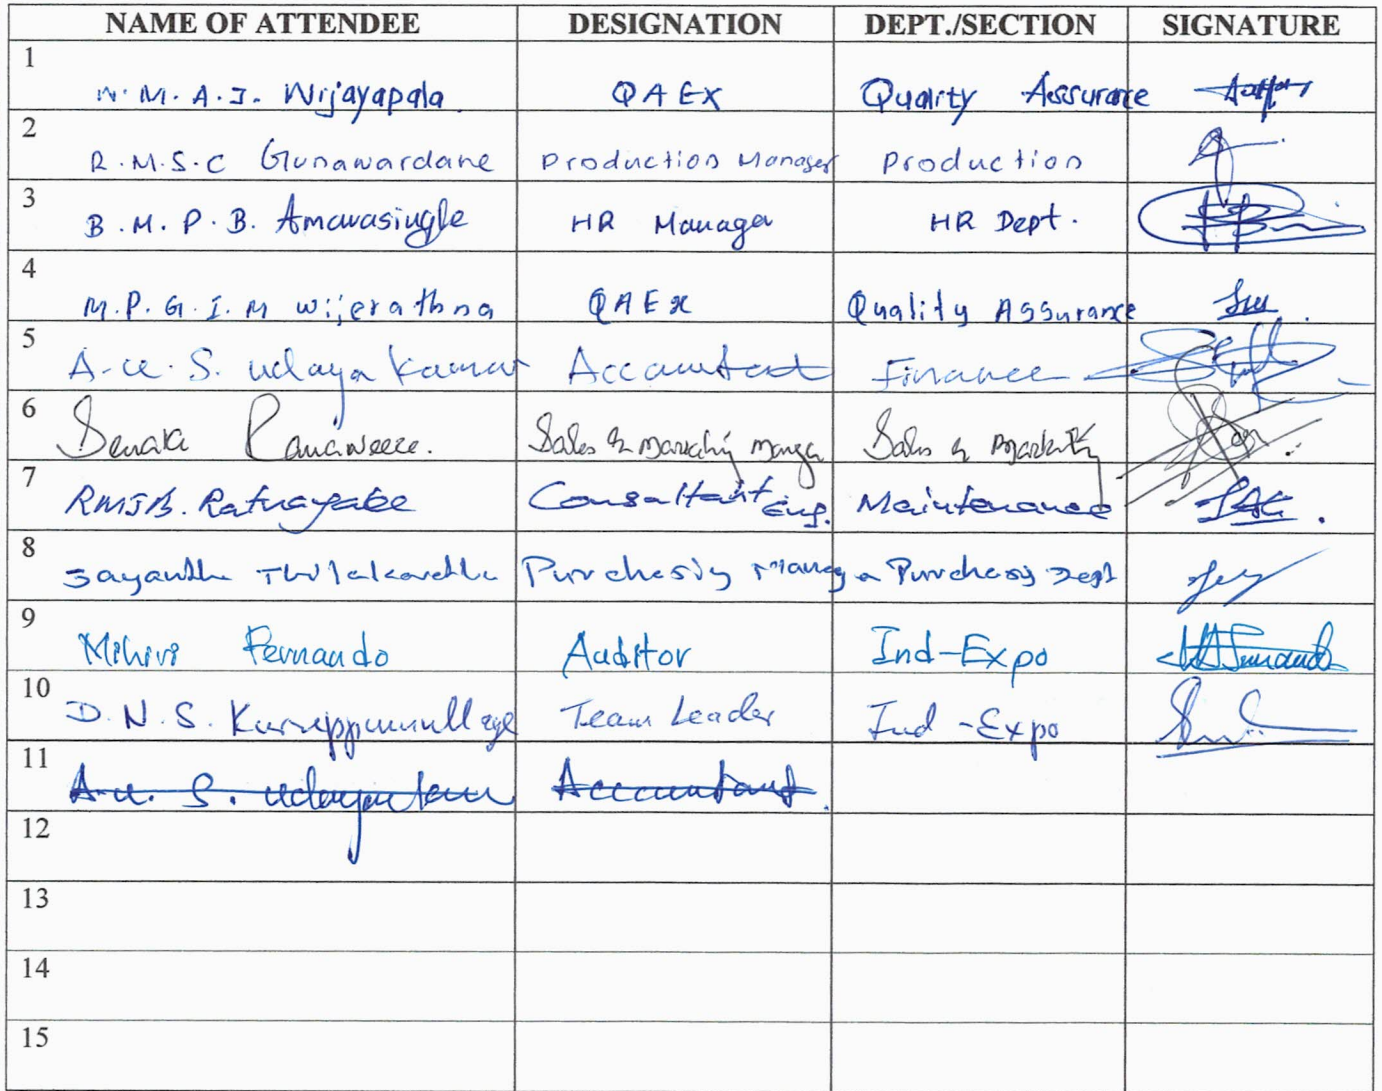 NAME OF ATTENDEE DESIGNATION DEPT./SECTION SIGNATURE
1 W. M. A. J. Wijayapala QA EX Quality Assurance
2 R. M. S. C Gunawardane Production Manager Production
3 B. M. P. B. Amarasinghe HR Manager HR Dept.
4 M. P. G. I. M Wijerathna QA Ex Quality Assurance
5 A. U. S. Udaya Kumar Accountant Finance
6 Senaka Ranaweera. Sales & Marketing Manager Sales & Marketing
7 RMJB. Ratnayake Consultant Eng. Maintenance
8 Jayantha Thilakarathna Purchasing Manager Purchasing Dept
9 Mihiri Fernando Auditor Ind-Expo
10 D. N. S. Kuruppumullage Team Leader Ind-Expo
11 A. U. S. Udayakumar Accountant.
12
13
14
15